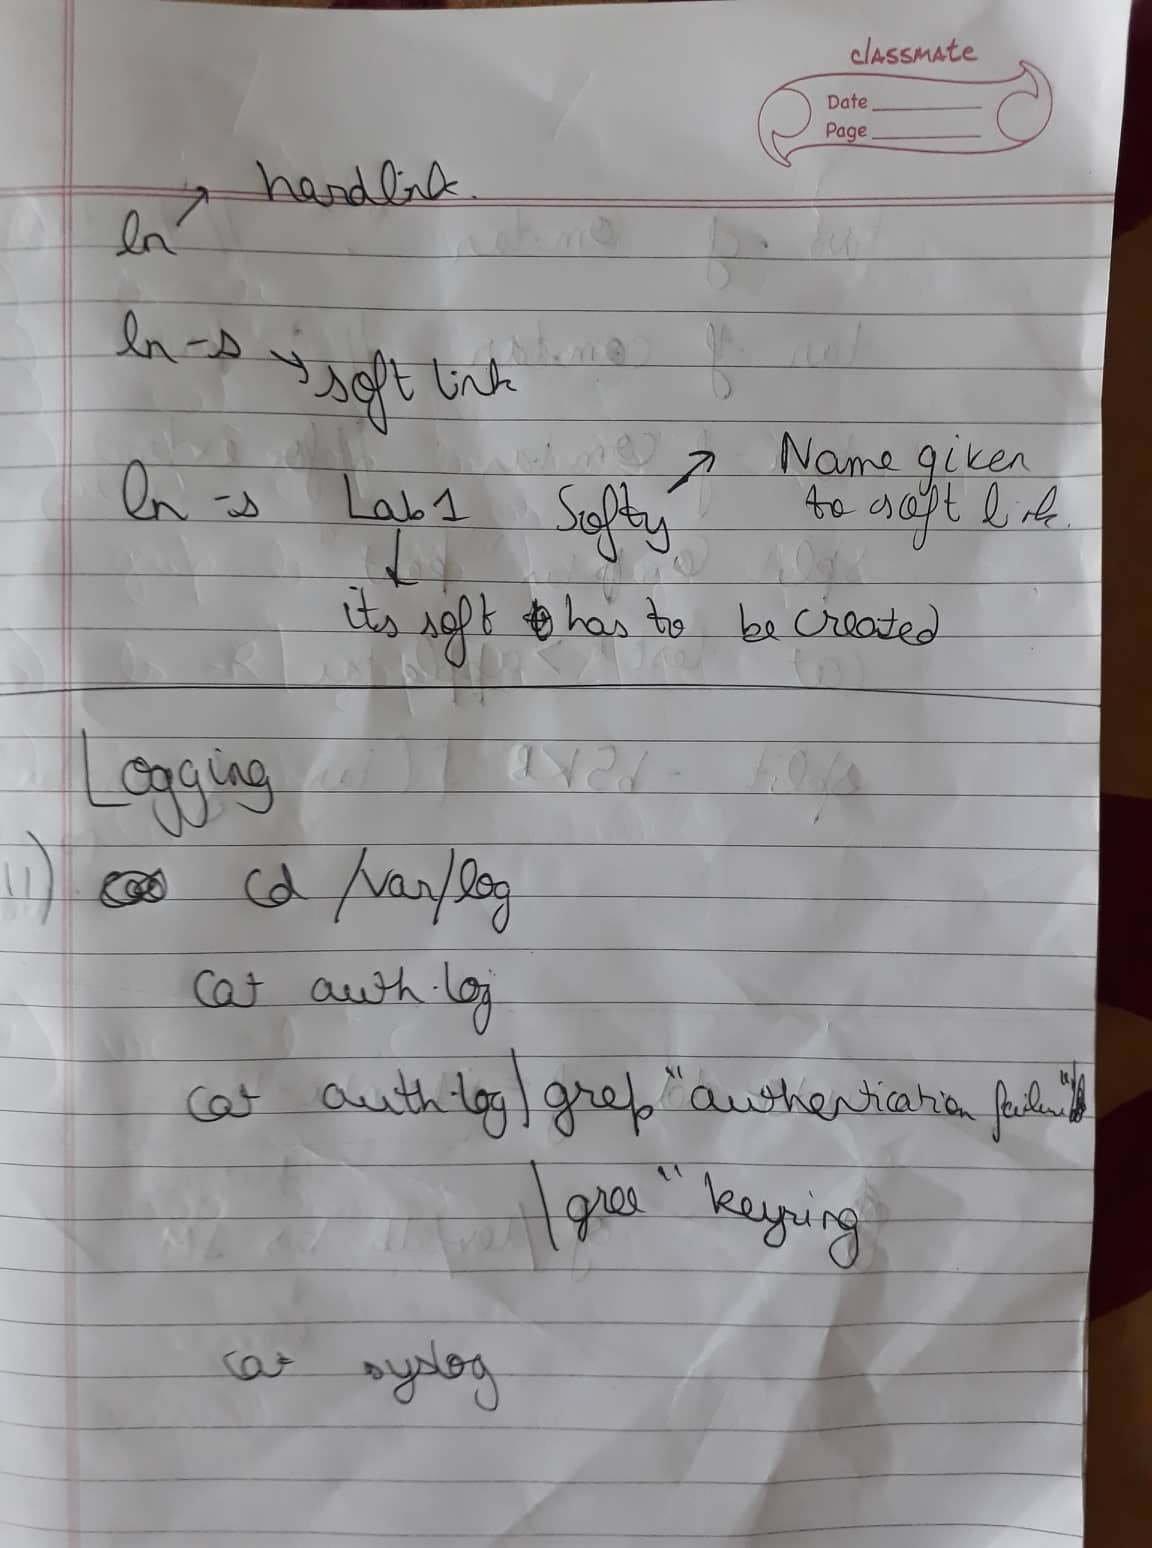 classmate
Date
Page
ln ↗ hardlink.
ln -s → soft link
ln -s Lab1 Softy ↗ Name given
to soft link.
↓
its soft has to be created
Logging
11) cd /var/log
cat auth.log
cat auth.log | grep "authentication failure"
| gree " keyring
cat syslog